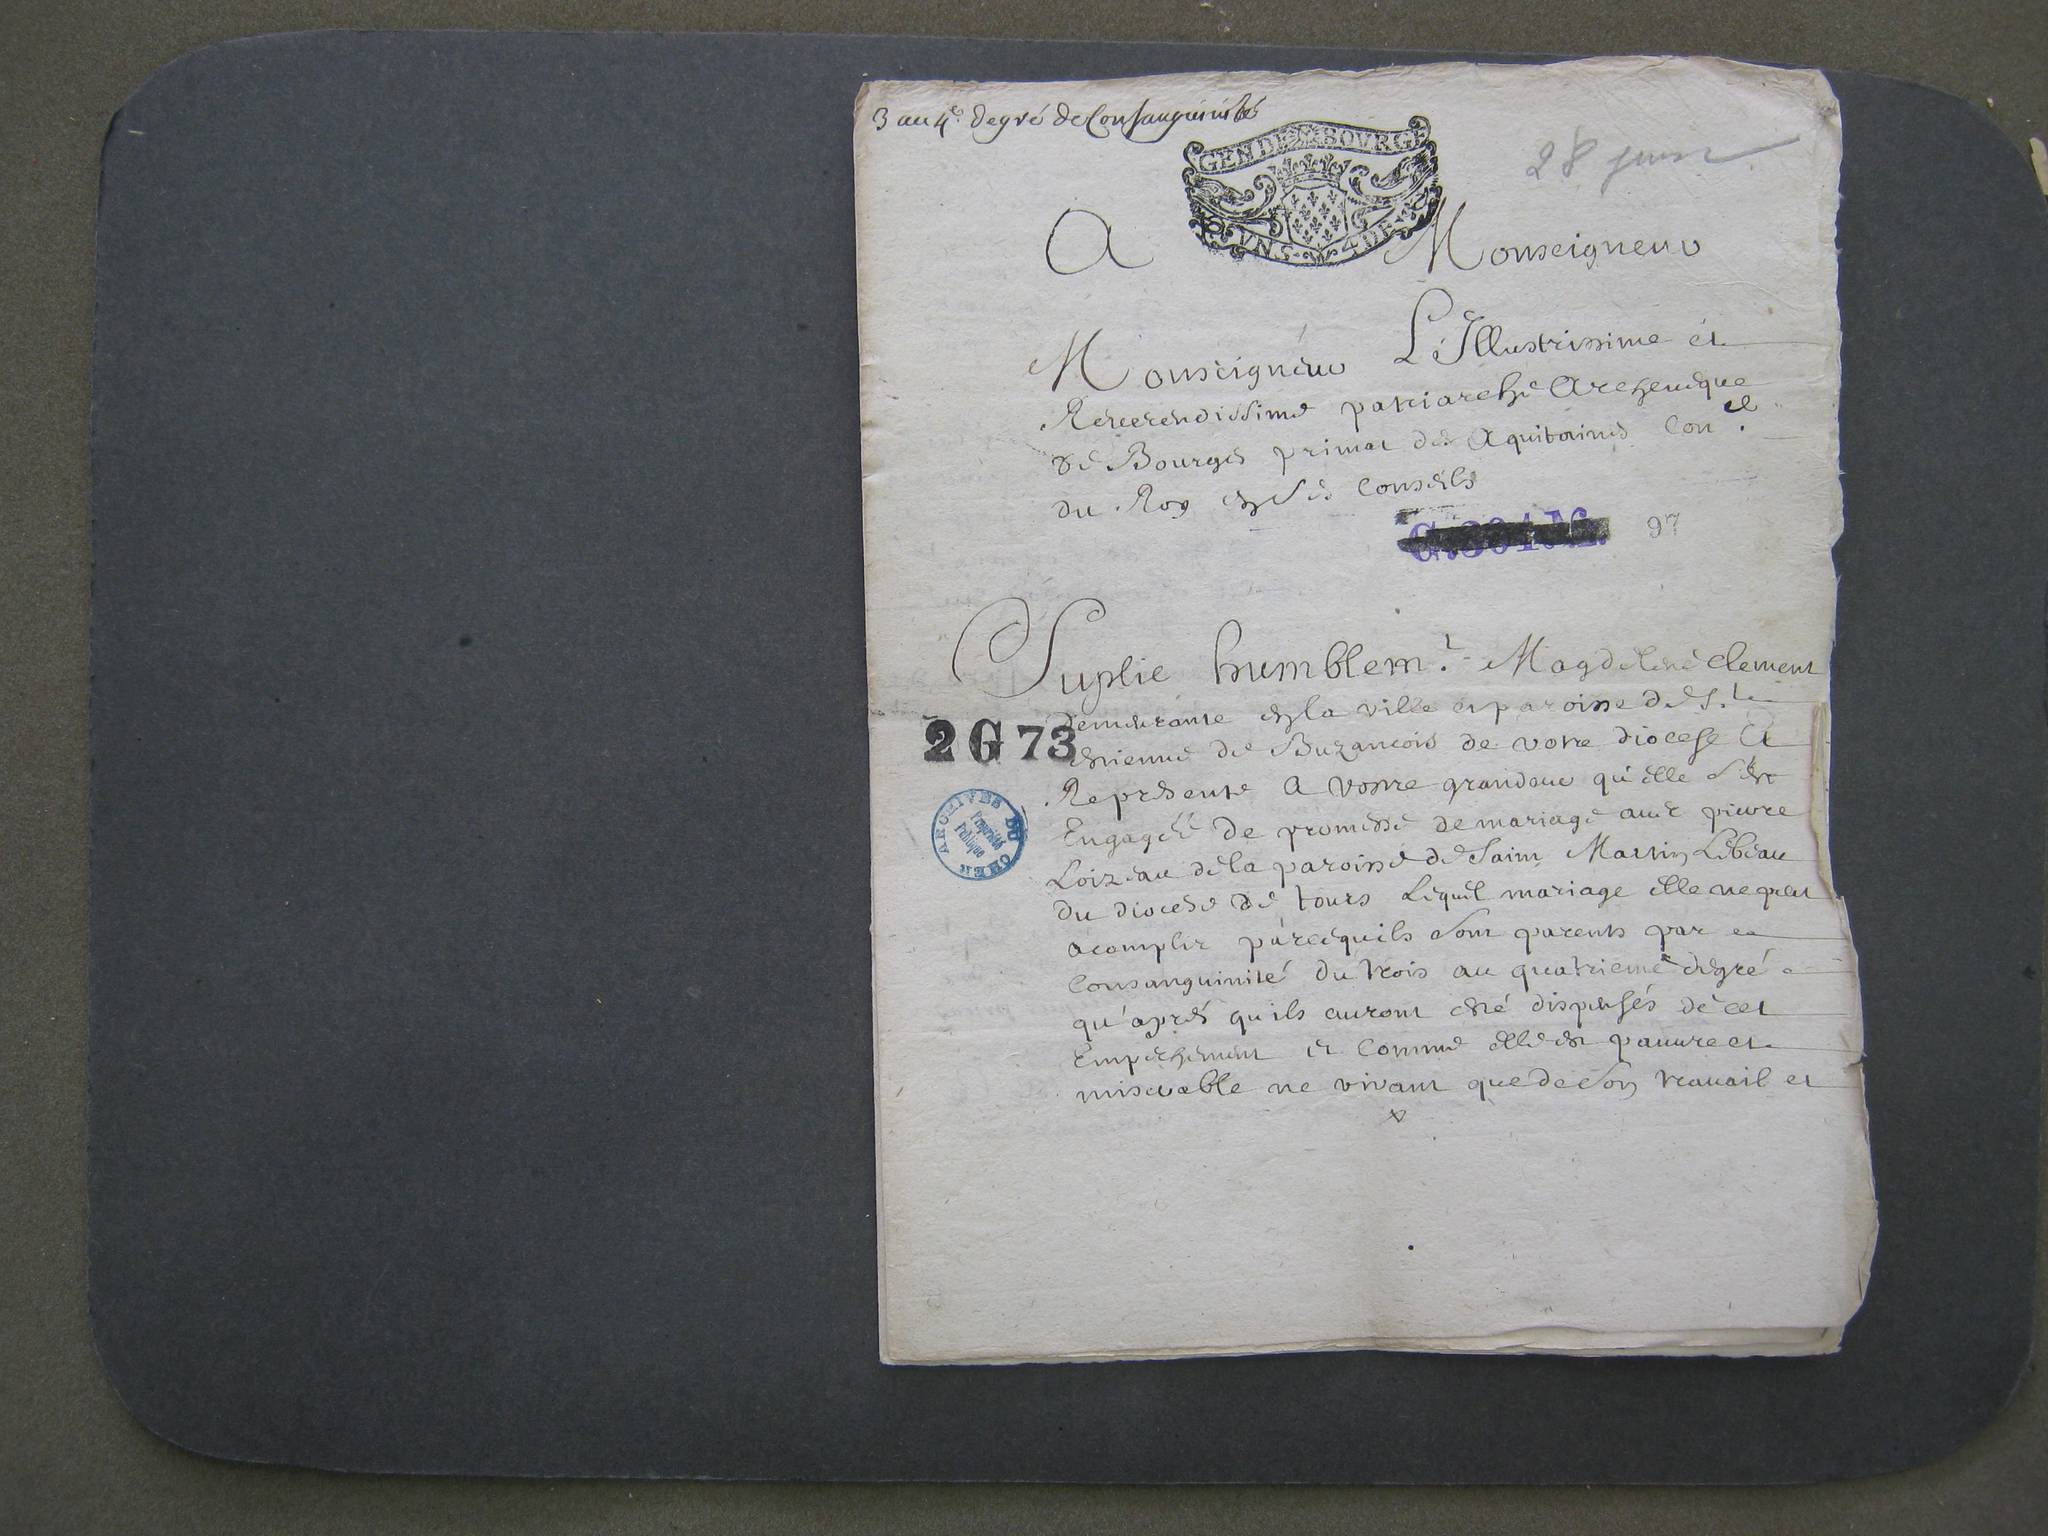 3 au 4e. degré de Consanguinité
28 juin
GEN DE BOVRG
VNS. 4 DE
A Monseigneur
Monseigneur L'Illustrissime et
Reverendissime patriarche Archeveque
de Bourges primat des Aquitaines Con.el
du Roy en ses Conseils
97
Suplie humblem.t Magdelene clement
demeurante en la ville et paroisse de S.t
2 G 73
etienne de Buzancois de votre diocese Et
Represente a vostre grandeur qu'elle s'est
Engagée de promesse de mariage avec pierre
ARCHIVES DU CHER
Propriété
Publique
Loizeau de la paroisse de Saint Martin Lebeau
du diocese de tours Lequel mariage elle ne peut
acomplir parcequils sont parents par
Consanguinité du trois au quatrieme degré
qu'aprés quils auront esté dispensés de cet
Empechement et Comme elle est pauvre et
miserable ne vivant que de son travail et